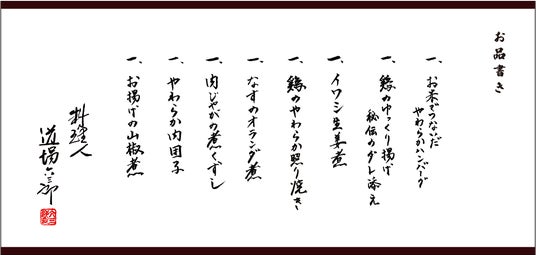 お品書き
一、お米でつないだ
やわらかハンバーグ
一、鶏のゆっくり揚げ
秘伝のタレ添え
一、イワシ生姜煮
一、鶏のやわらか照り焼き
一、なすのオランダ煮
一、肉じゃがの煮くずし
一、やわらか肉団子
一、お揚げの山椒煮
料理人
道場六三郎